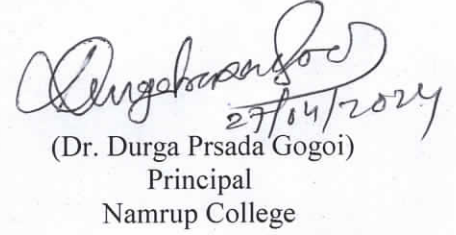 27/04/2024
(Dr. Durga Prsada Gogoi)
Principal
Namrup College